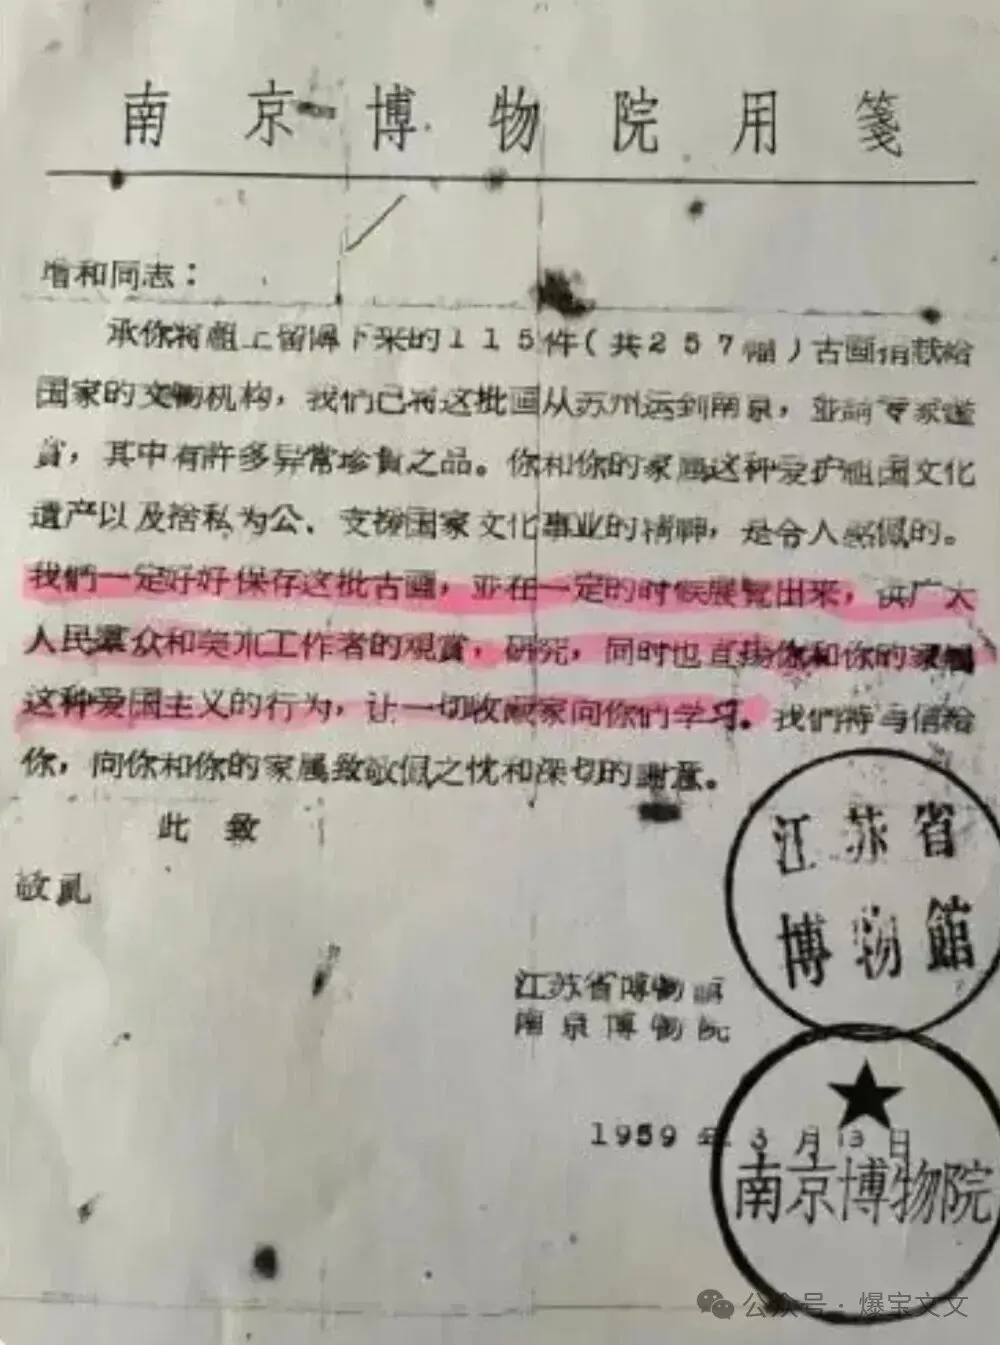 南京博物院用笺
增和同志：
承你将祖上留传下来的115件(共257幅)古画捐献给
国家的文物机构，我们已将这批画从苏州运到南京，並請专家鉴
賞，其中有許多异常珍貴之品。你和你的家属这种爱护祖国文化
遺产以及捨私为公、支援国家文化事业的精神，是令人感佩的。
我們一定好好保存这批古画，並在一定的时候展覽出来，供广大
人民羣众和美术工作者的观賞，研究，同时也宣揚你和你的家属
这种爱国主义的行为，让一切收藏家向你們学习。我們特写信给
你，向你和你的家属致敬佩之忱和深切的謝意。
此致
敬礼
江苏省博物館
南京博物院
1959年3月13日
江苏省
博物館
南京博物院
公众号·爆宝文文